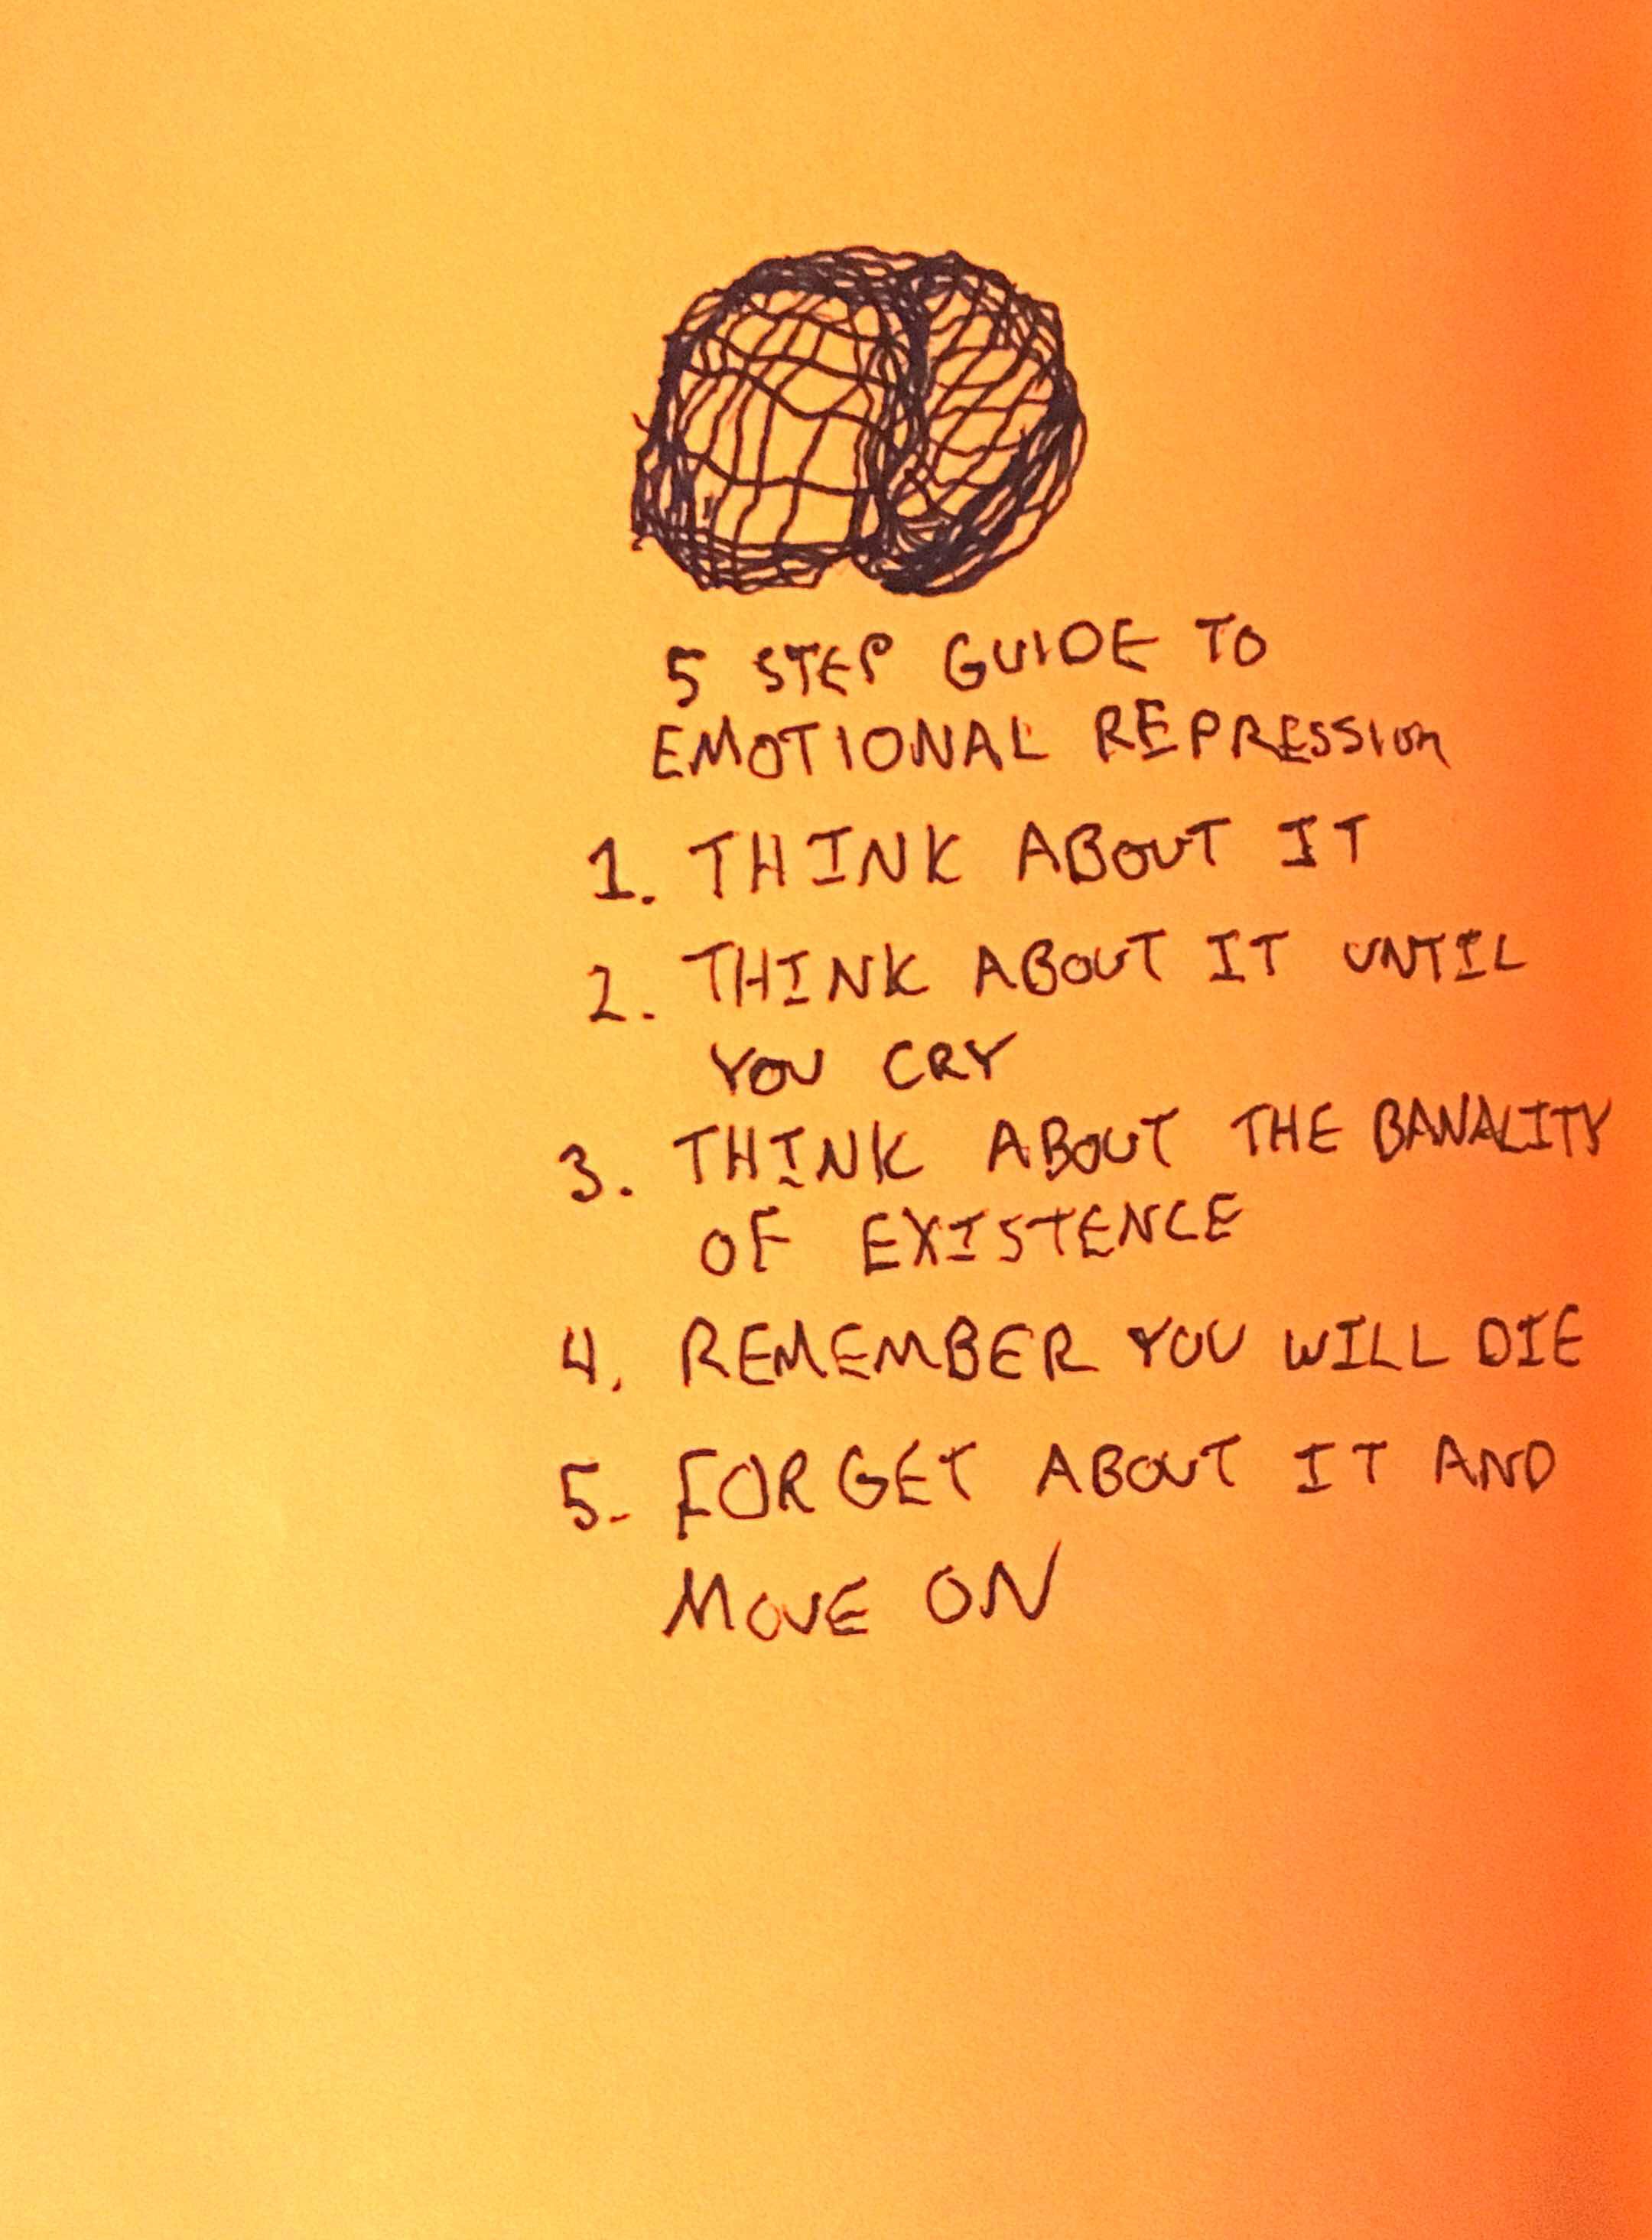 5 STEP GUIDE TO
EMOTIONAL REPRESSION
1. THINK ABOUT IT
2. THINK ABOUT IT UNTIL
YOU CRY
3. THINK ABOUT THE BANALITY
OF EXISTENCE
4. REMEMBER YOU WILL DIE
5. FORGET ABOUT IT AND
MOVE ON